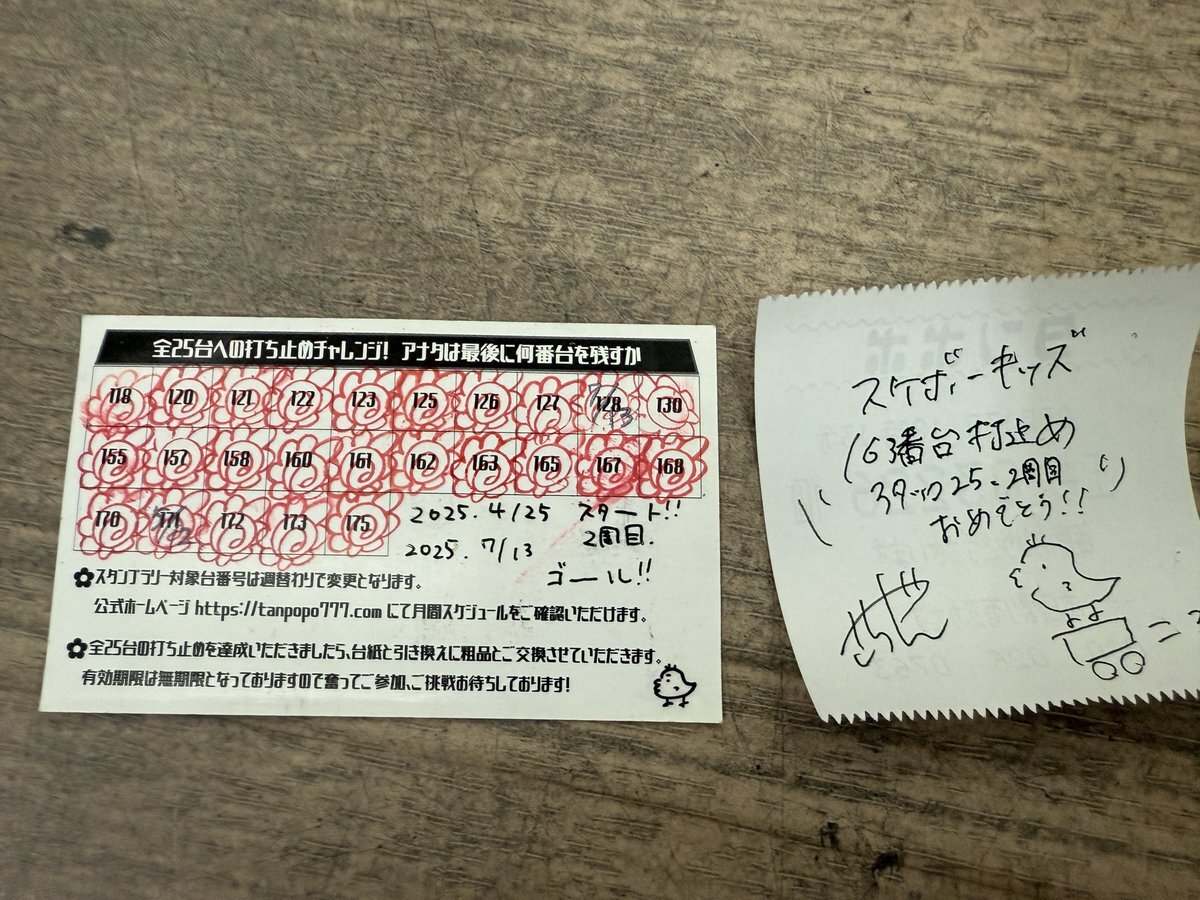 全25台への打ち止めチャレンジ! アナタは最後に何番台を残すか
118 120 121 122 123 125 126 127 128 130
7/13
155 157 158 160 161 162 163 165 167 168
170 171 172 173 175
2025.4/25 スタート!!
2周目.
2025.7/13
ゴール!!
✿スタンプラリー対象台番号は週替わりで変更となります。
公式ホームページ https://tanpopo777.com にて月間スケジュールをご確認いただけます。
✿全25台の打ち止めを達成いただきましたら、台紙と引き換えに粗品とご交換させていただきます。
有効期限は無期限となっておりますので奮ってご参加、ご挑戦お待ちしております!
スケボーキッズ
163番台打止め
スタック25、2周目
おめでとう!!